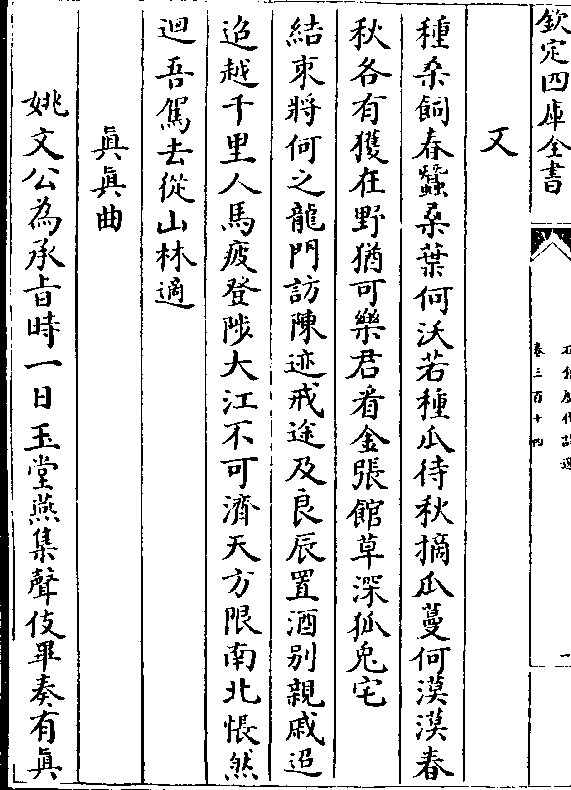 欽定四庫全書
又
種桑飼春蠶桑葉何沃若種瓜待秋摘瓜蔓何漠漠春
秋各有獲在野猶可樂君看金張館草深狐兎宅
結束將何之龍門訪陳迹戒途及良辰置酒别親戚迢
迢越千里人馬疲登陟大江不可濟天方限南北悵然
迴吾駕去從山林適
真真曲
姚文公為承旨時一日玉堂燕集聲伎畢奏有真
卷三百十四